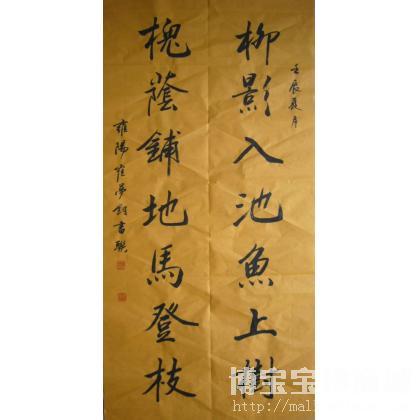 壬辰夏月
柳影入池魚上樹
槐蔭鋪地馬登枝
雍陽崔夢
書聯
博宝
http://mal